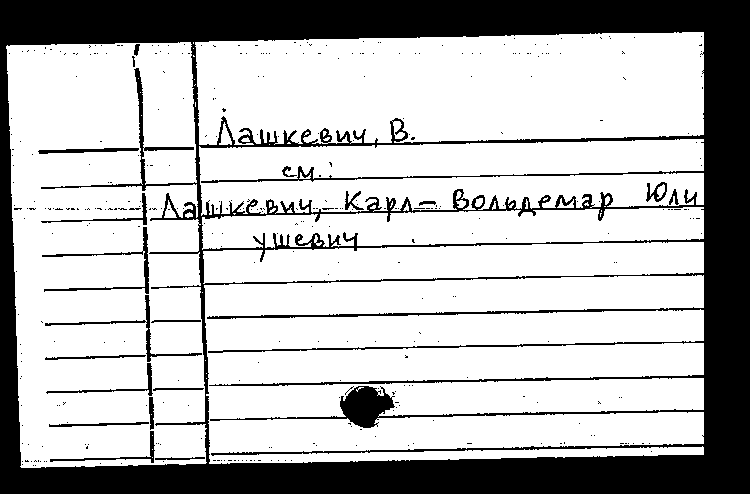 Лашкевич, В.
см.:
Лашкевич, Карл - Вольдемар Юли
ушевич